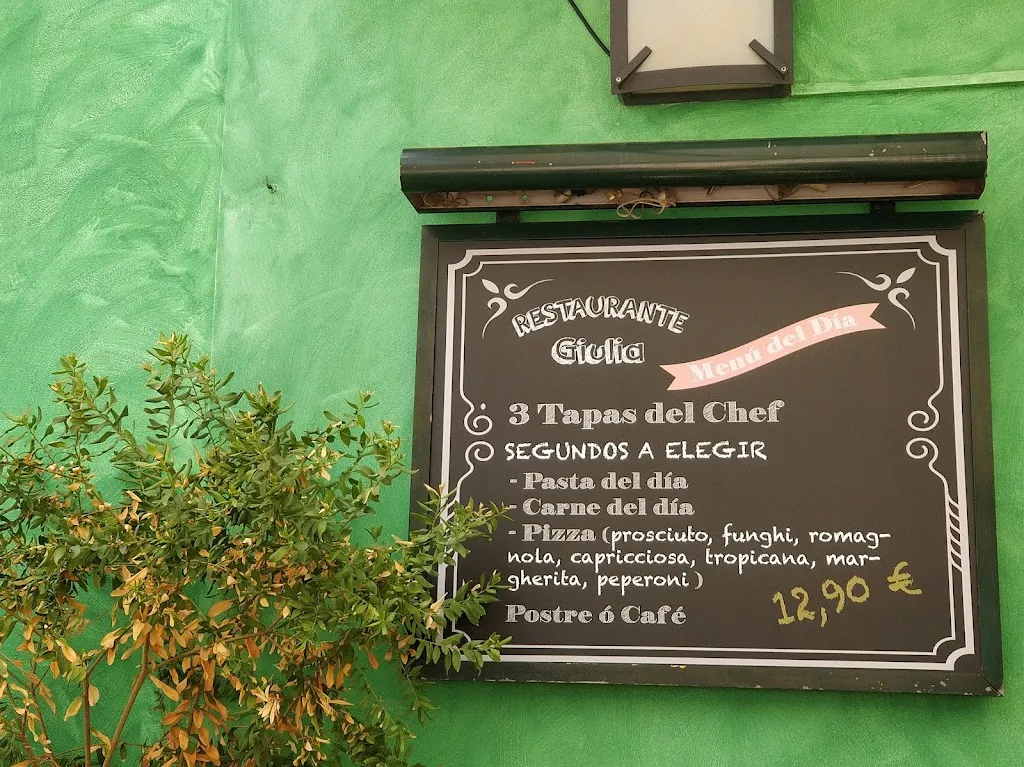 RESTAURANTE
Giulia
Menú del Día
3 Tapas del Chef
SEGUNDOS A ELEGIR
- Pasta del día
- Carne del día
- Pizza (prosciuto, funghi, romag-
nola, capricciosa, tropicana, mar-
gherita, peperoni)
Postre ó Café
12,90 €